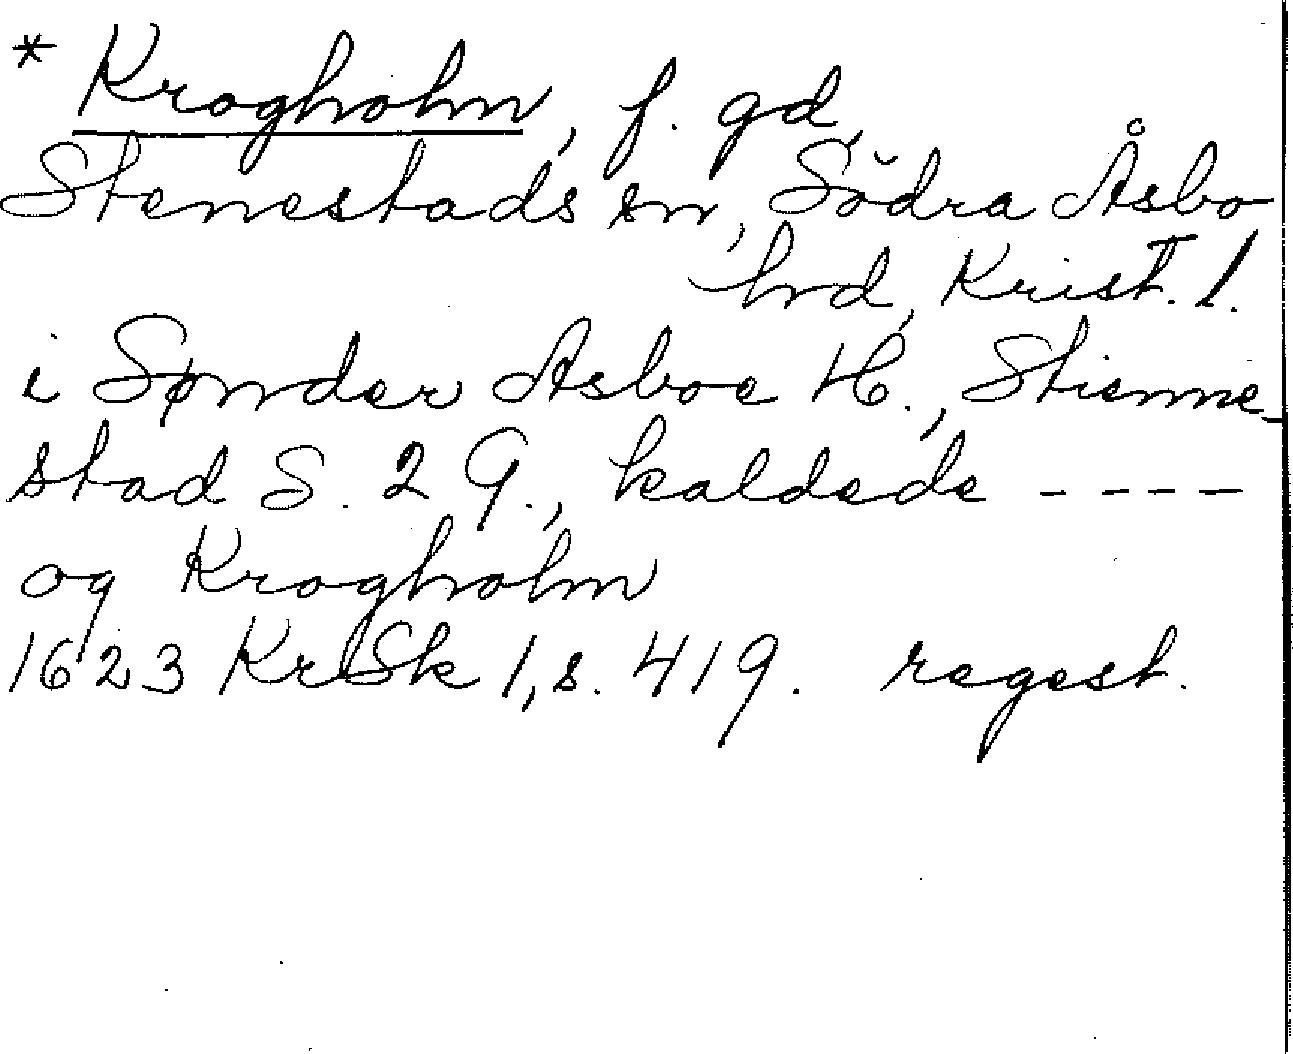 * Krogholm, f. gd,
Stenestads sn, Södra Åsbo
hrd, Krist. l.
i Sønder Asboe H., Stienne-
stad S. 2 G., kaldede ----
og Krogholm
1623 KrSk 1, s. 419. regest.